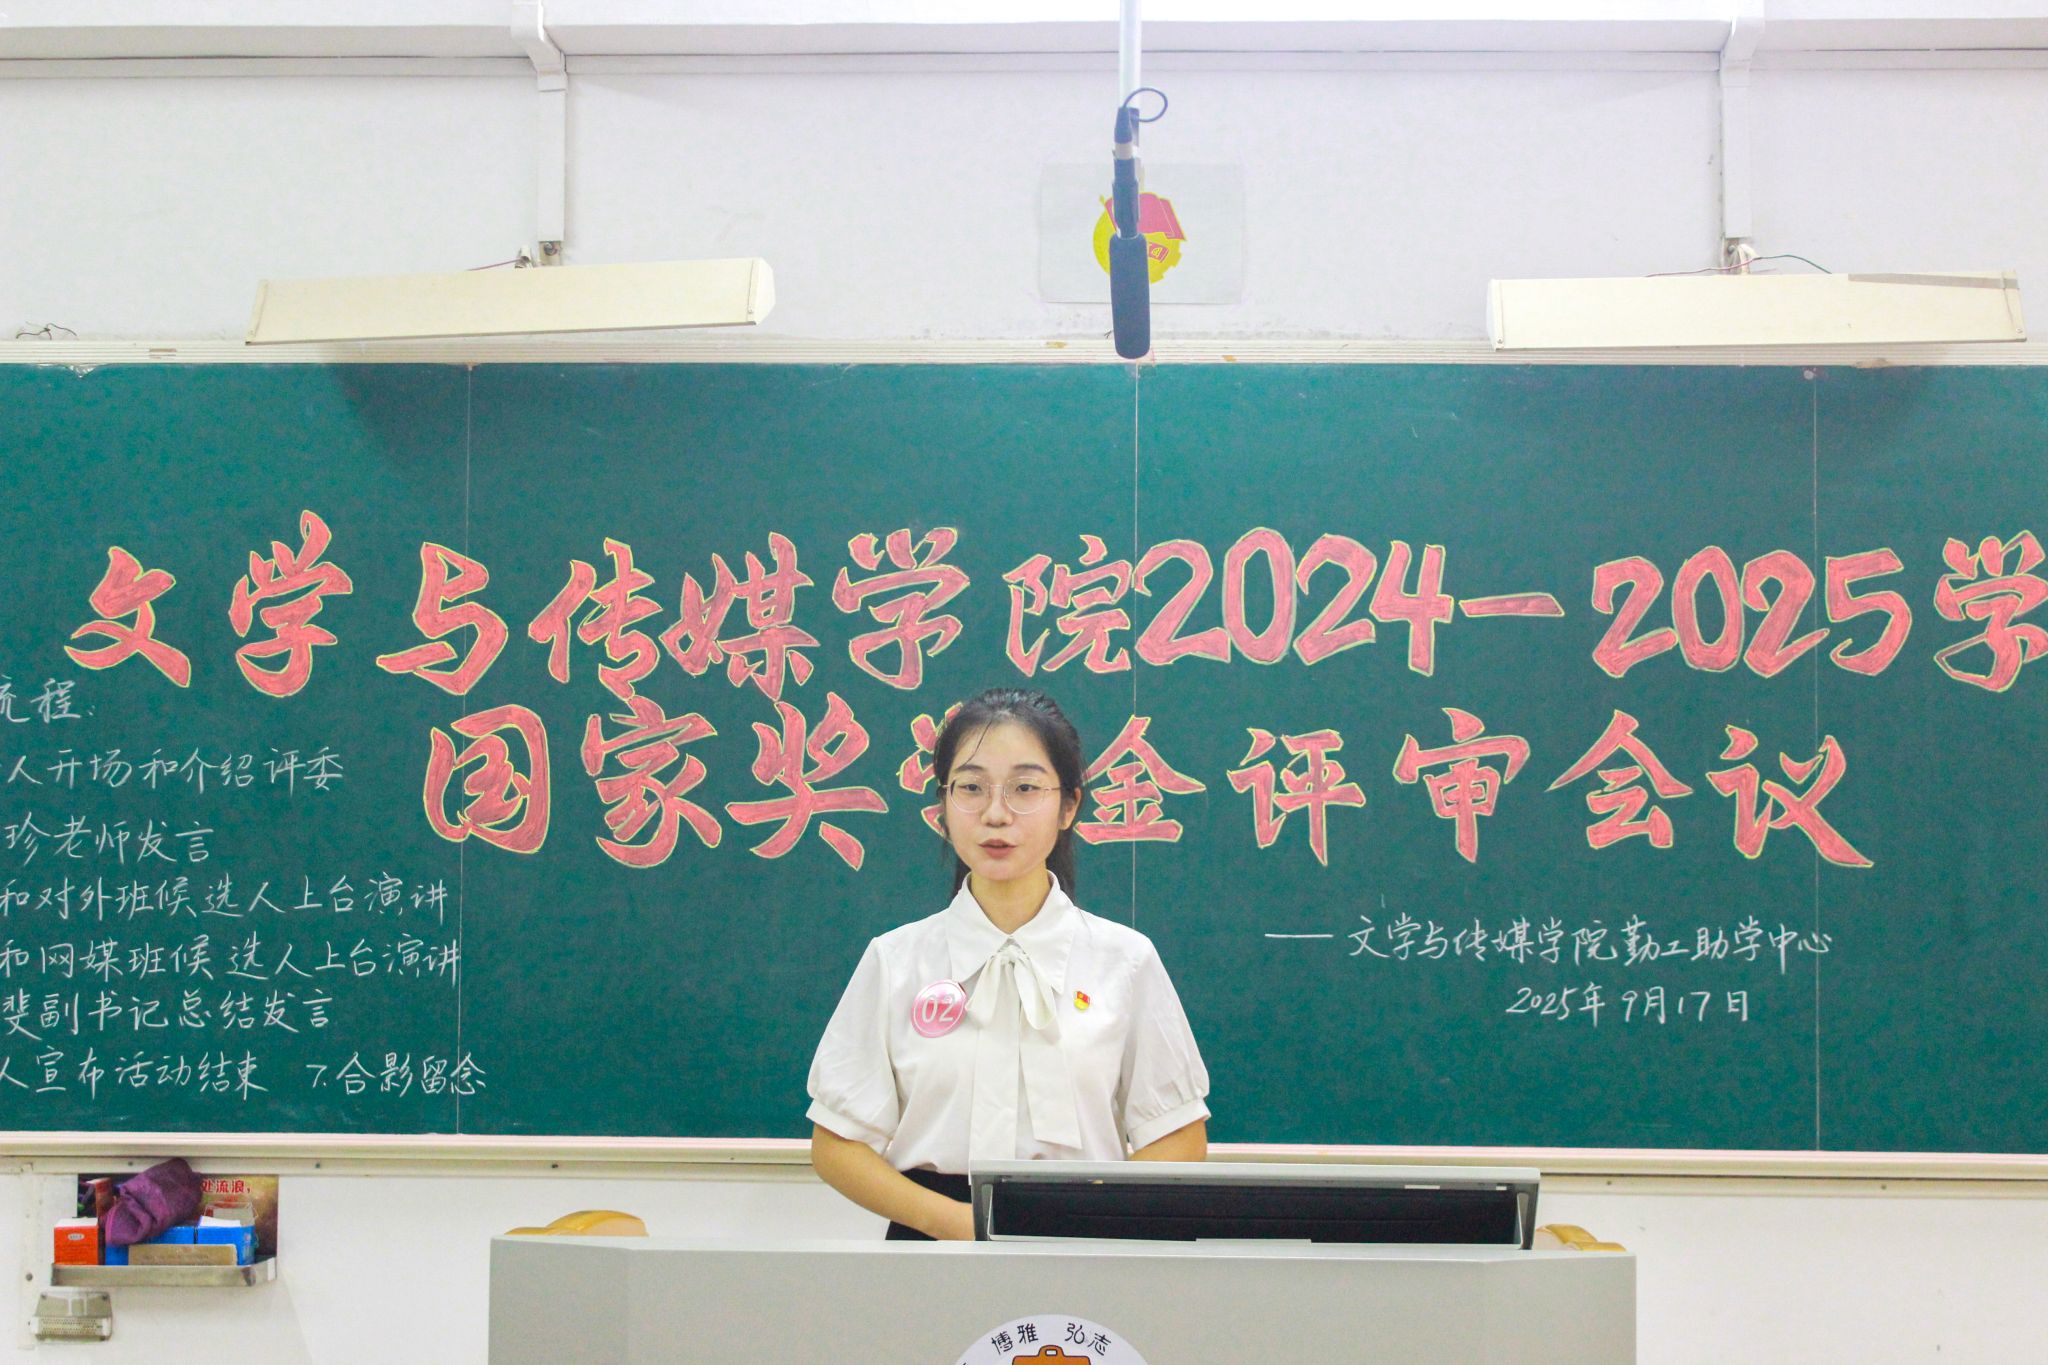 文学与传媒学院2024—2025学
国家奖学金评审会议
流程:
人开场和介绍评委
珍老师发言
和对外班候选人上台演讲
和网媒班候选人上台演讲
斐副书记总结发言
人宣布活动结束 7.合影留念
——文学与传媒学院勤工助学中心
2025年9月17日
02
处流浪,
博雅 弘志